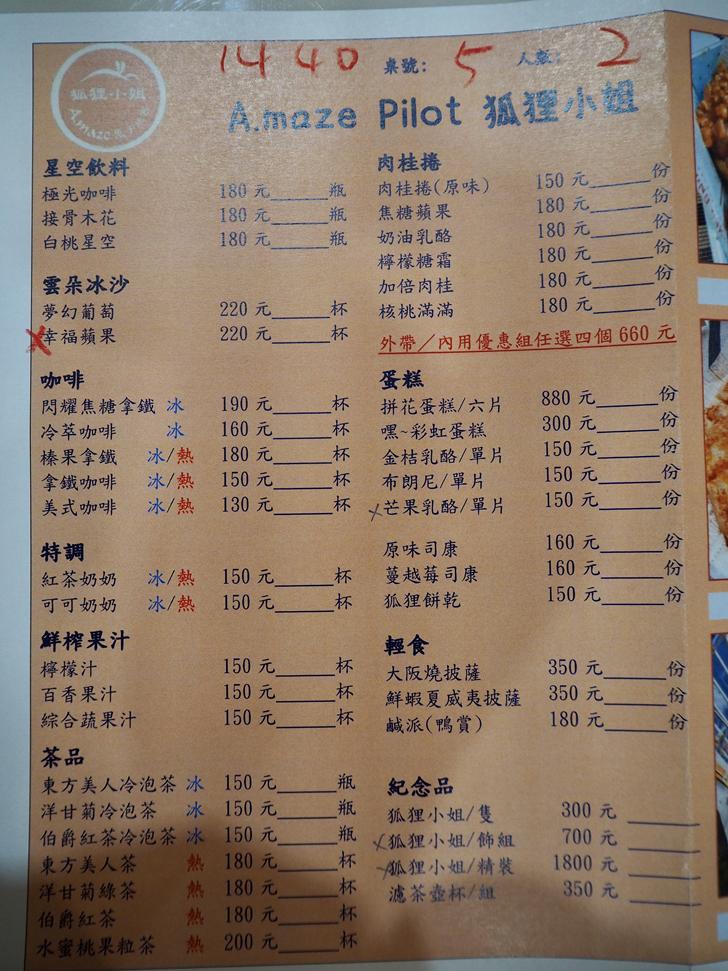 1440 桌號: 5 人數: 2
狐狸小姐
A.maze
A.maze Pilot 狐狸小姐
星空飲料
極光咖啡 180 元______瓶
接骨木花 180 元______瓶
白桃星空 180 元______瓶
雲朵冰沙
夢幻葡萄 220 元______杯
x幸福蘋果 220 元______杯
咖啡
閃耀焦糖拿鐵 冰 190 元______杯
冷萃咖啡 冰 160 元______杯
榛果拿鐵 冰/熱 180 元______杯
拿鐵咖啡 冰/熱 150 元______杯
美式咖啡 冰/熱 130 元______杯
特調
紅茶奶奶 冰/熱 150 元______杯
可可奶奶 冰/熱 150 元______杯
鮮榨果汁
檸檬汁 150 元______杯
百香果汁 150 元______杯
綜合蔬果汁 150 元______杯
茶品
東方美人冷泡茶 冰 150 元______瓶
洋甘菊冷泡茶 冰 150 元______瓶
伯爵紅茶冷泡茶 冰 150 元______瓶
東方美人茶 熱 180 元______杯
洋甘菊綠茶 熱 180 元______杯
伯爵紅茶 熱 180 元______杯
水蜜桃果粒茶 熱 200 元______杯
肉桂捲
肉桂捲(原味) 150 元______份
焦糖蘋果 180 元______份
奶油乳酪 180 元______份
檸檬糖霜 180 元______份
加倍肉桂 180 元______份
核桃滿滿 180 元______份
外帶/內用優惠組任選四個 660 元
蛋糕
拼花蛋糕/六片 880 元______份
嘿~彩虹蛋糕 300 元______份
金桔乳酪/單片 150 元______份
布朗尼/單片 150 元______份
x芒果乳酪/單片 150 元______份
原味司康 160 元______份
蔓越莓司康 160 元______份
狐狸餅乾 150 元______份
輕食
大阪燒披薩 350 元______份
鮮蝦夏威夷披薩 350 元______份
鹹派(鴨賞) 180 元______份
紀念品
狐狸小姐/隻 300 元 ______
x狐狸小姐/飾組 700 元 ______
x狐狸小姐/精裝 1800 元 ______
濾茶壺杯/組 350 元 ______